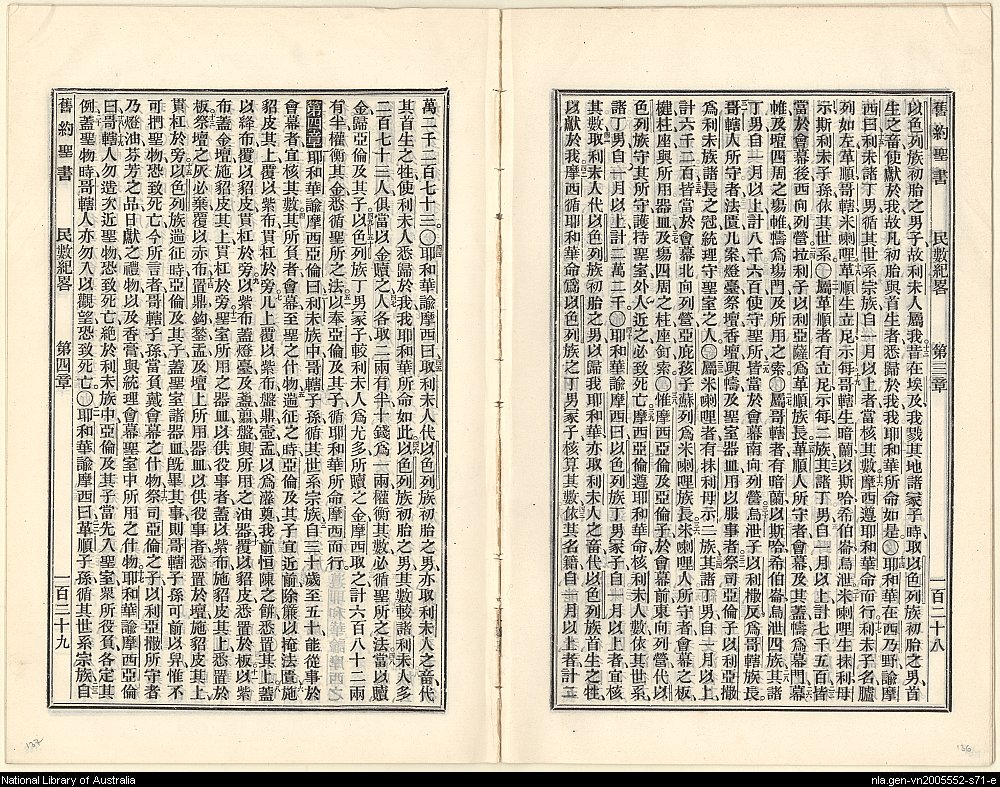 舊約聖書 民數紀畧 第三章 一百二十八
以色列族初胎之男子故利未人屬我昔在埃及我戮其地諸冢子時取以色列族初胎之男首
生之畜使獻於我故凡初胎與首生者悉歸於我我耶和華所命如是○耶和華在西乃野諭摩
西曰利未諸丁男循其世系宗族自一月以上者當核其數摩西遵耶和華命而行利未子名臚
列如左革順哥轄米喇哩革順生立尼示每哥轄生暗蘭以斯哈希伯崙烏泄米喇哩生抹利母
示斯利未子孫依其世系○屬革順者有立尼示每二族其諸丁男自一月以上計七千五百皆
當於會幕後西向列營拉利子以利亞薩爲革順族長革順人所守者會幕及其蓋幬爲幕門幕
帷及壇四周之場帷幬爲場門及所用之索○屬哥轄者有暗蘭以斯哈希伯崙烏泄四族其諸
丁男自一月以上計八千六百使守聖所皆當於會幕南向列營烏泄子以利撒反爲哥轄族長
哥轄人所守者法匱几案燈臺祭壇香壇與幬及聖室器皿用以服事者祭司亞倫子以利亞撒
爲利未族諸長之冠統理守聖室之人○屬米喇哩者有抹利母示二族其諸丁男自一月以上
計六千二百皆當於會幕北向列營亞庇孩子蘇列爲米喇哩族長米喇哩人所守者會幕之板
楗柱座與所用器皿及場四周之柱座釘索○惟摩西亞倫及亞倫子於會幕前東向列營代以
色列族守其所守護持聖室外人近之必致死亡摩西亞倫遵耶和華命核利未人數依其世系
諸丁男自一月以上計二萬二千○耶和華諭摩西曰以色列族丁男冢子自一月以上者宜核
其數取利未人代以色列族初胎之男以歸我耶和華亦取利未人之畜代以色列族首生之牲
以獻於我摩西循耶和華命爲以色列族之丁男冢子核算其數依其名籍自一月以上者計二
萬二千二百七十三○耶和華諭摩西曰取利未人代以色列族初胎之男亦取利未人之畜代
其首生之牲使利未人悉歸於我我耶和華所命如此以色列族初胎之男其數較諸利未人多
二百七十三人俱當以金贖之人各取二兩有半十錢爲一兩權衡其數必循聖所之法當以贖
金歸亞倫及其子以色列族丁男冢子較利未人爲尤多所贖之金摩西取之計六百八十二兩
有半權衡其金悉循聖所之法以奉亞倫及其子循耶和華所命摩西而行
第四章耶和華諭摩西亞倫曰利未族中哥轄子孫循其世系宗族自三十歲至五十能從事於
會幕者宜核其數其所負者會幕至聖之什物遄征之時亞倫及其子宜近前除簾以掩法匱施
貂皮其上覆以紫布貫杠於旁几上覆以紫布盤鼎壺盂以爲灌奠我前恒陳之餅悉置其上蓋
以絳布覆以貂皮貫杠於旁以紫布蓋燈臺及盞翦盤與所用之油器覆以貂皮悉置於板以紫
布蓋金壇施貂皮其上貫杠於旁聖室所用之器皿以供役事者蓋以紫布施貂皮其上悉置於
板祭壇之灰必棄覆以赤布置鼎鈎鍫盂及壇上所用器皿以供役事者悉置於壇施貂皮其上
貫杠於旁以色列族遄征時亞倫及其子蓋聖室諸器皿旣畢其事則哥轄子孫可前以舁惟不
可捫聖物恐致死亡今所言者哥轄子孫當負戴會幕之什物祭司亞倫之子以利亞撒所守者
乃燈油芬芳之品日獻之禮物以及香膏與統理會幕聖室中所用之什物耶和華諭摩西亞倫
曰哥轄人勿遣次近聖物恐致死亡絕於利未族中亞倫及其子當先入聖室衆所役負各定其
例蓋聖物時哥轄人亦勿入以觀望恐致死亡○耶和華諭摩西曰革順子孫循其世系宗族自
舊約聖書 民數紀畧 第四章 一百二十九
137
136
National Library of Australia
nla.gen-vn2005552-s71-e